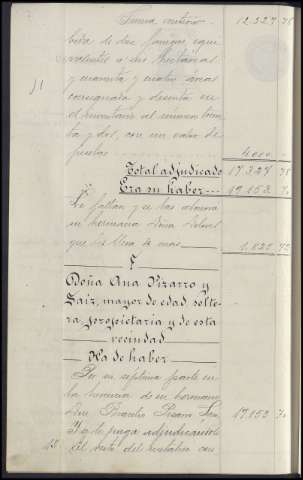 Suma anterior 12.327 75
bida de dos fanegas, equi
valentes a dos hectáreas
y cuarenta y cuatro áreas
consignada y descrita en
el inventario al número trein
ta y dos, con un valor de
pesetas 4000
Total adjudicado 17.327 75
Era su haber 19.153 70
Le faltan y se las abona
su hermana Doña
que las lleva de más 1.825 75
Doña Ana Pizarro y
Saiz, mayor de edad, solte
ra, propietaria y de esta
vecindad
Ha de haber
Por su septima parte en
la herencia de su hermano
Don Pizarro 19.153 70
Se le paga adjudicándole
El resto del con